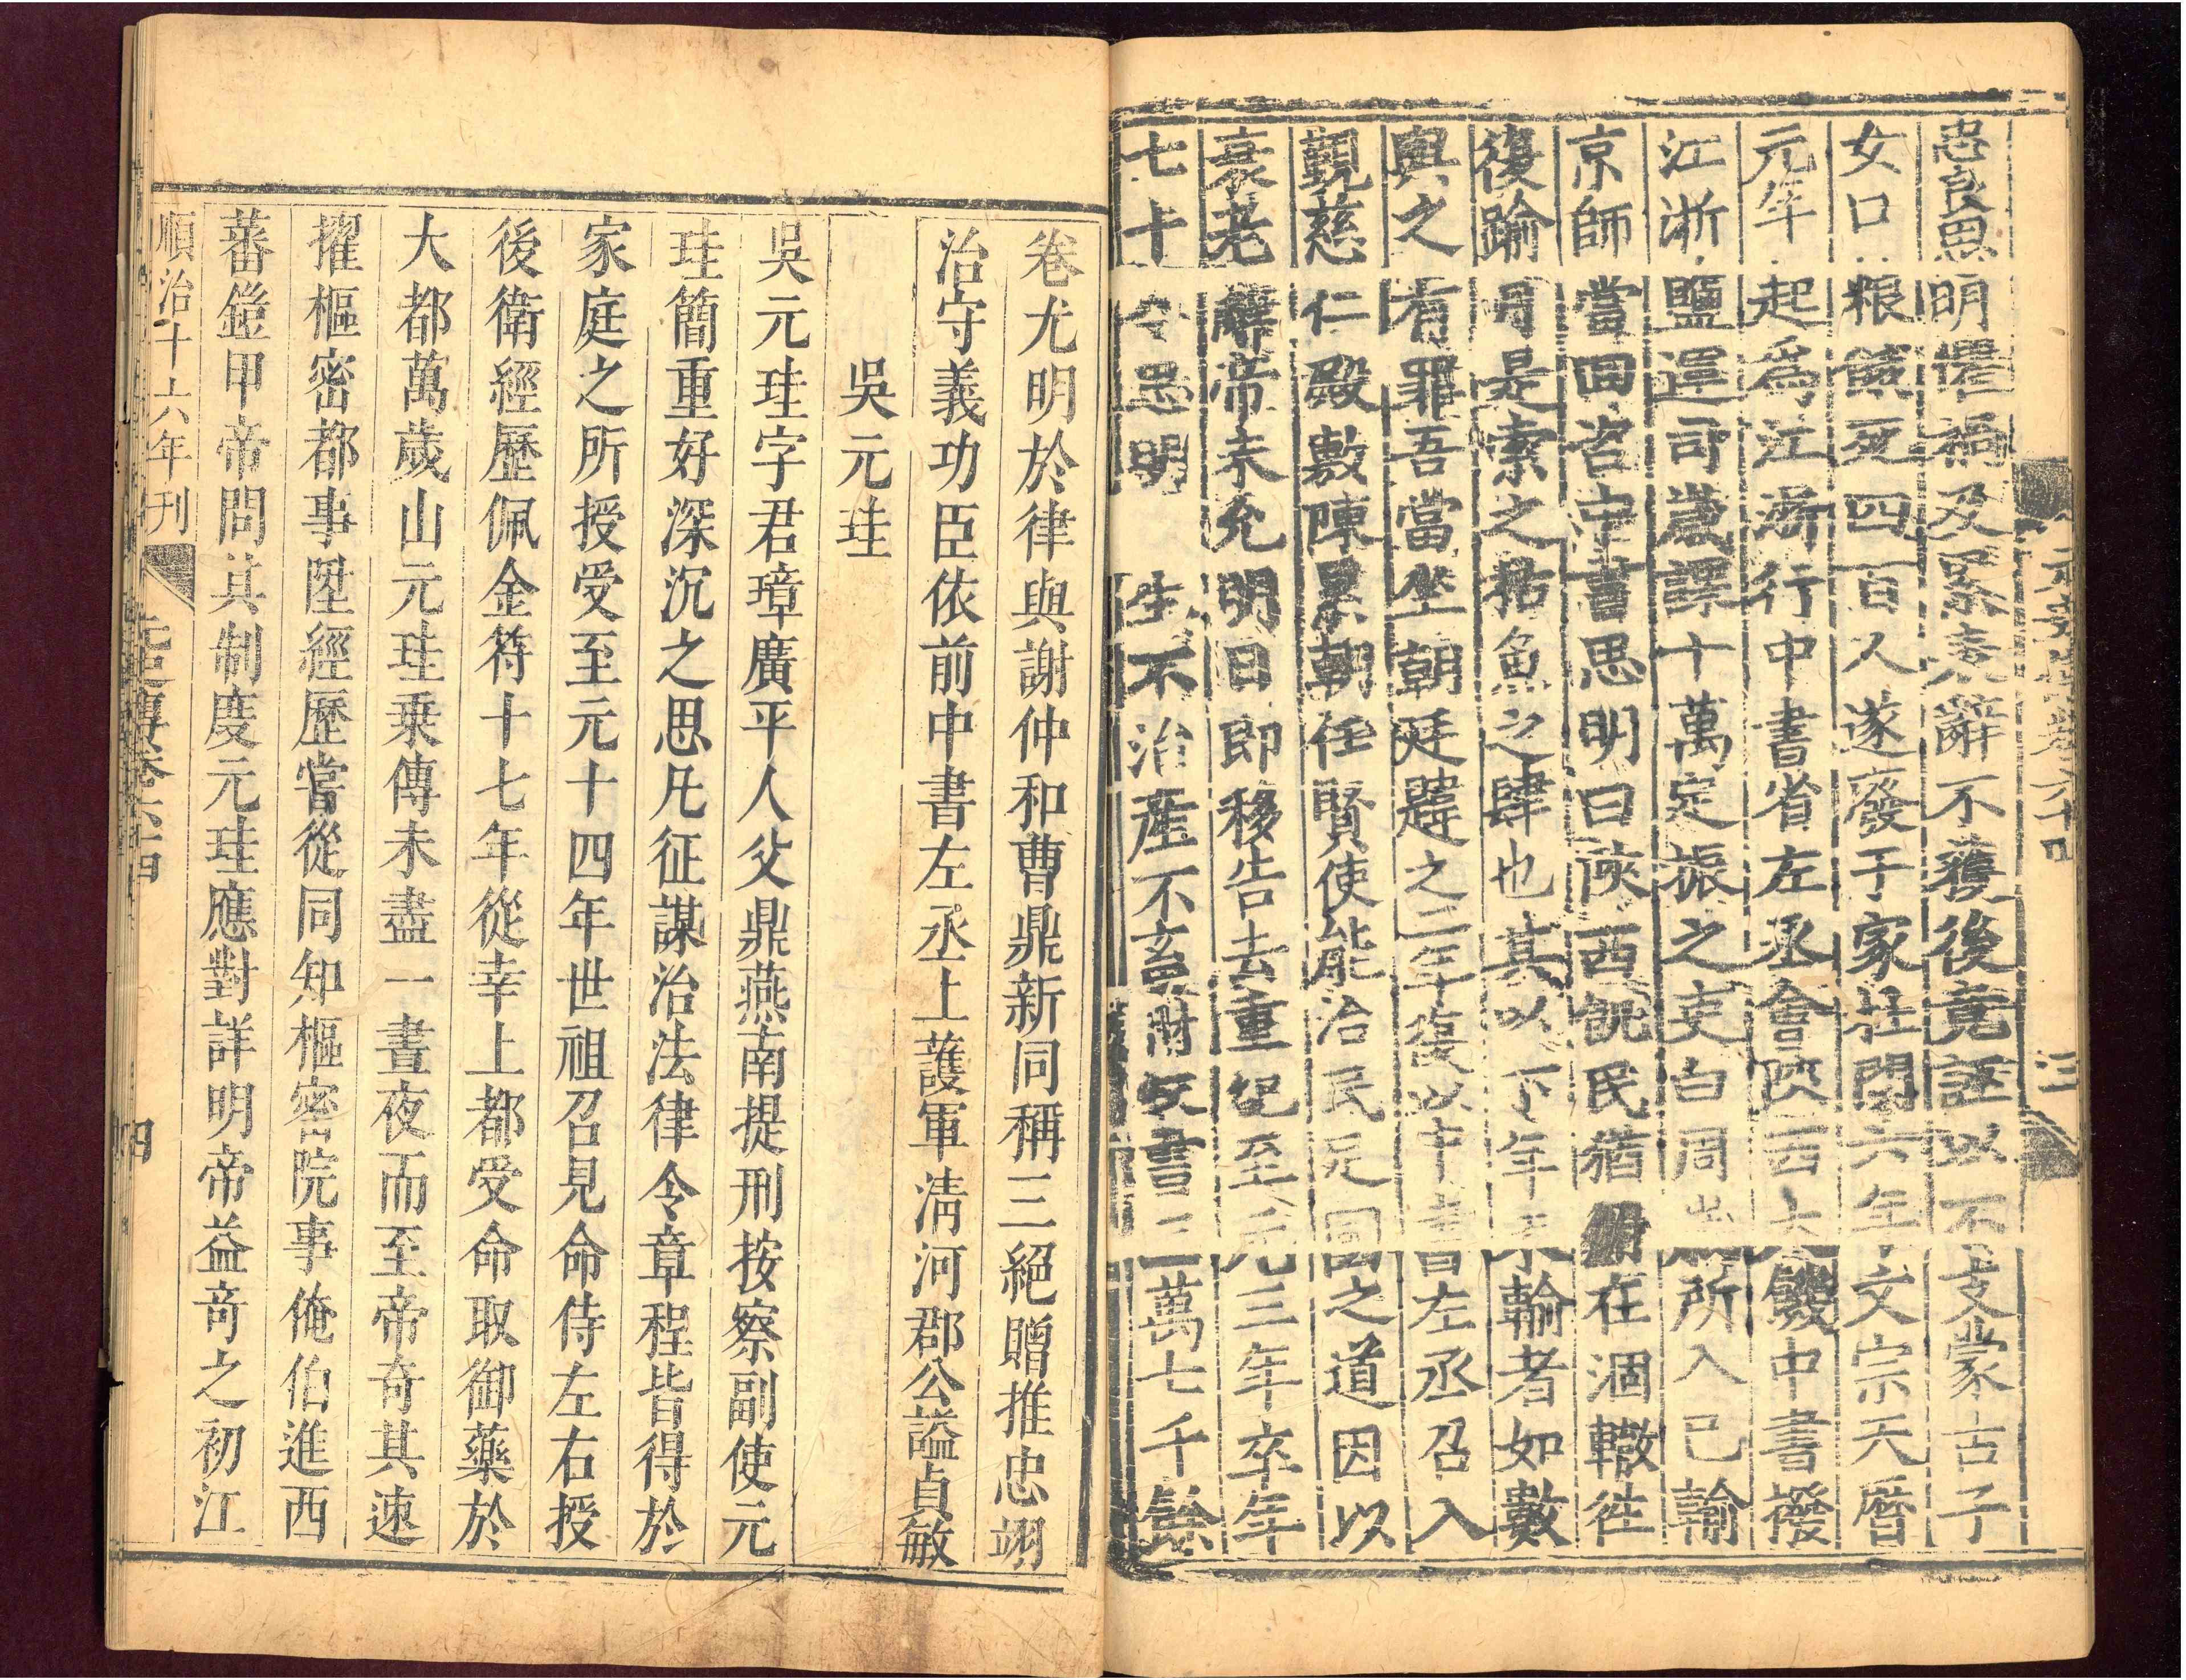 忠良思明懼禍及累表辭不獲後竟誣以不支蒙古子
女口粮餓死四百人遂廢于家杜門六年文宗天曆
元年起爲江浙行中書省左丞會陝西大饑中書撥
江浙鹽運司歲課十萬定振之吏白周歲所入已輸
京師當回咨中書思明曰陝西饑民猶鮒在涸轍徃
復踰月是索之枯魚之肆也其以下年未輸者如數
與之有罪吾當坐朝廷韙之二年復以中書左丞召入
覲慈仁殿敷陳累朝任賢使能治民足國之道因以
衰老辭帝未允明日即移告去重紀至元三年卒年
七十八思明平生不治產不畜財收書三萬七千餘
卷尤明於律與謝仲和曹鼎新同稱三絕贈推忠翊
治守義功臣依前中書左丞上護軍淸河郡公謚貞敏
吳元珪
吳元珪字君璋廣平人父鼎燕南提刑按察副使元
珪簡重好深沉之思凡征謀治法律令章程皆得於
家庭之所授受至元十四年世祖召見命侍左右授
後衛經歷佩金符十七年從幸上都受命取御藥於
大都萬歲山元珪乗傳未盡一晝夜而至帝奇其速
擢樞密都事陞經歷嘗從同知樞密院事俺伯進西
蕃鎧甲帝問其制度元珪應對詳明帝益奇之初江
順治十六年刊